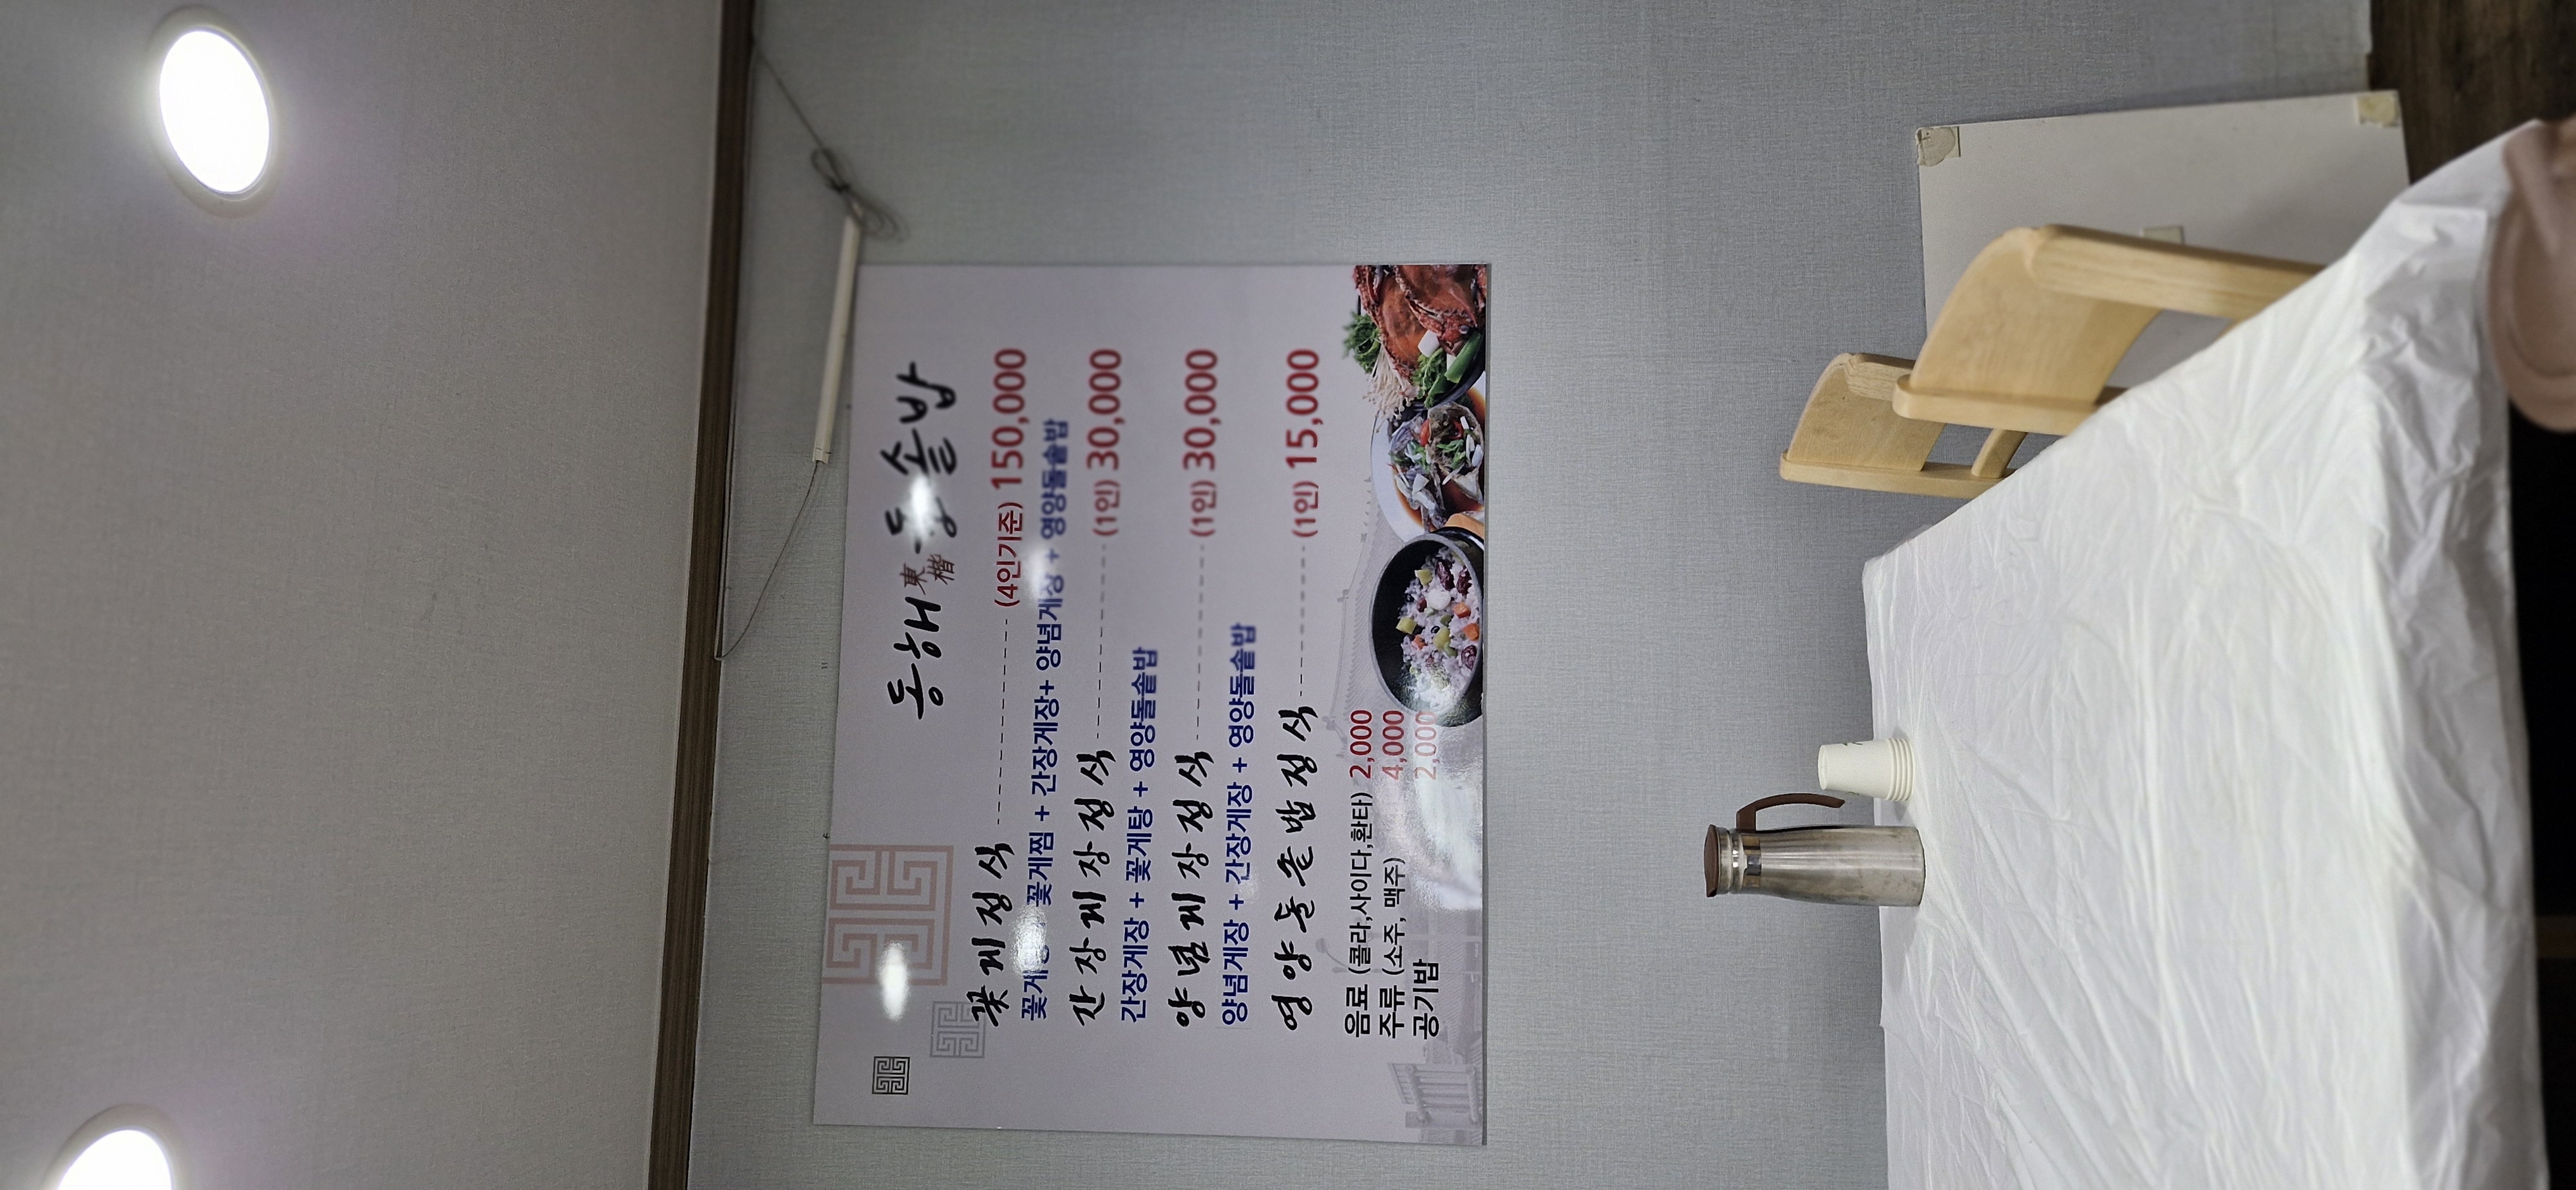 동해 東楷 돌솥밥
꽃게정식 (4인기준) 150,000
꽃게찜 + 간장게장+ 양념게장 + 영양돌솥밥
간장게장정식 (1인) 30,000
간장게장 + 꽃게탕 + 영양돌솥밥
양념게장정식 (1인) 30,000
양념게장 + 간장게장 + 영양돌솥밥
영양돌솥밥정식 (1인) 15,000
음료 (콜라,사이다,환타) 2,000
주류 (소주, 맥주) 4,000
공기밥 2,000